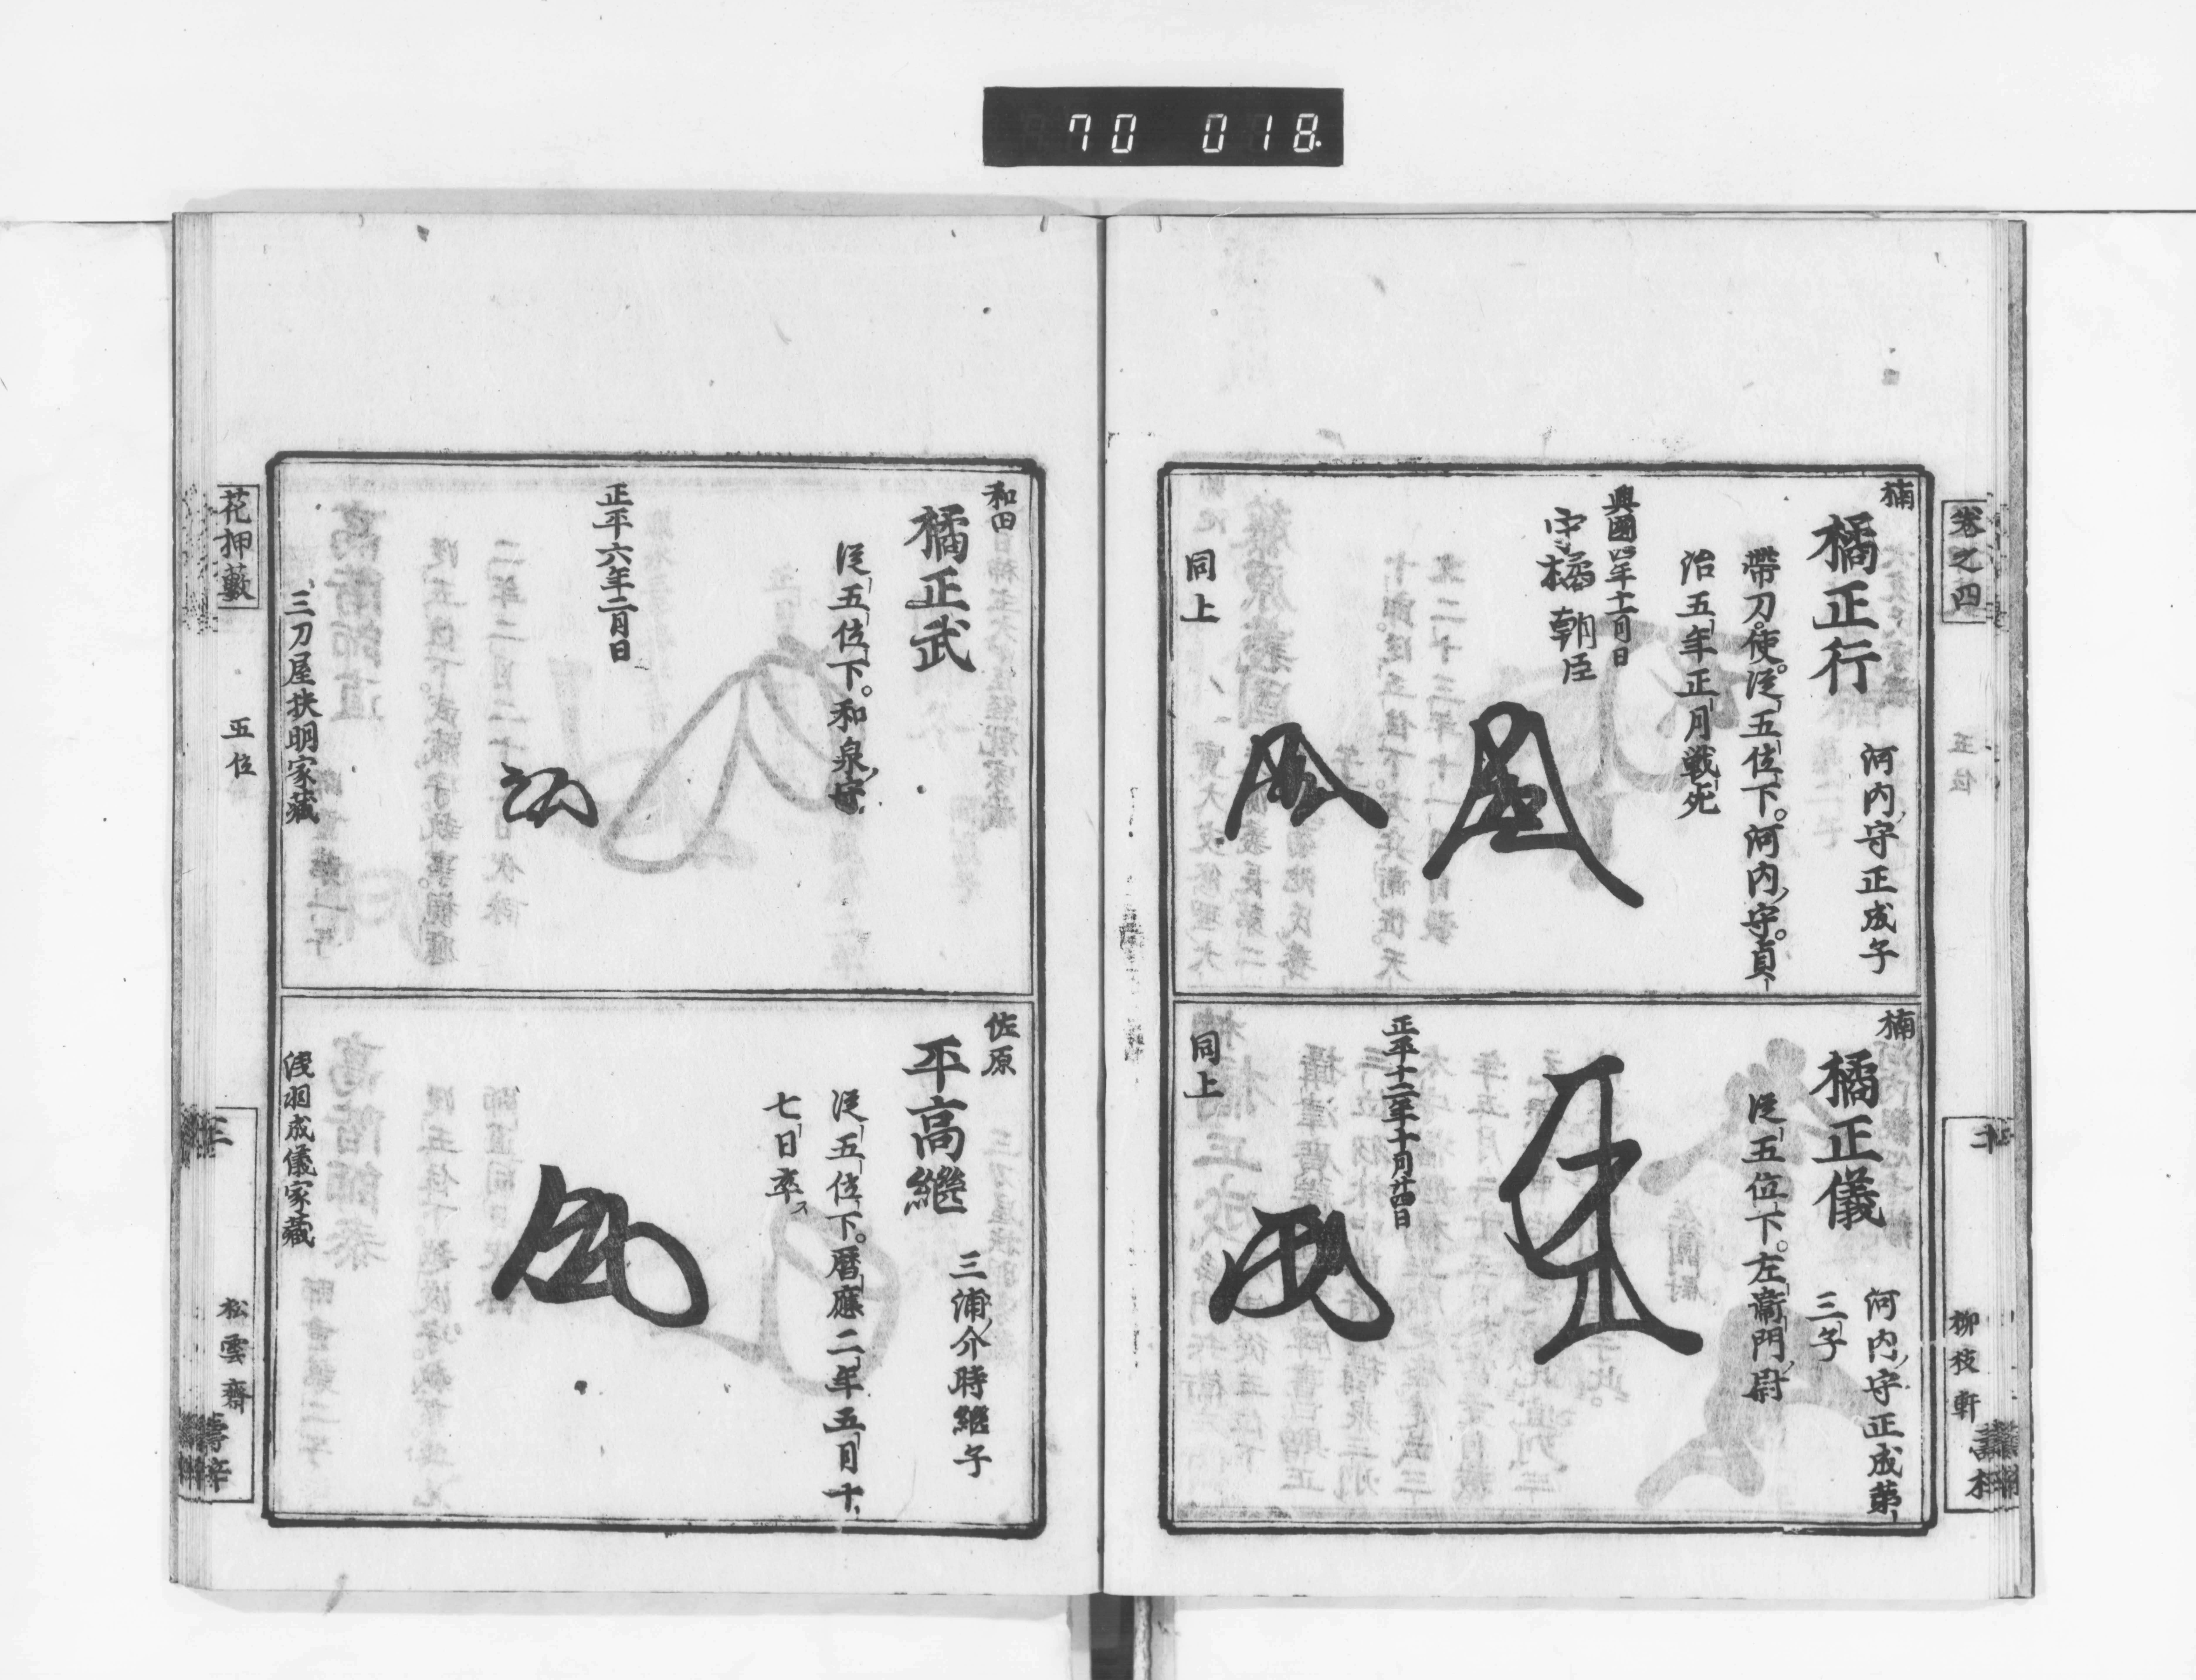 70 018
卷之四
五位
柳枝軒
楠
橘正行
河内守正成子
帶刀。使。從五位下。河内守。貞
治五年正月戰死
興國四年十二月日
守橘朝臣
同上
楠
橘正儀
河内守正成第
三子
從五位下。左衞門尉
正平十二年十月廿四日
同上
和田
橘正武
從五位下。和泉守
正平六年二月日
三刀屋扶明家藏
佐原
平高繼
三浦介時繼子
從五位下。暦應二年五月十
七日卒ス
淺羽成儀家藏
花押藪
五位
松雲齋